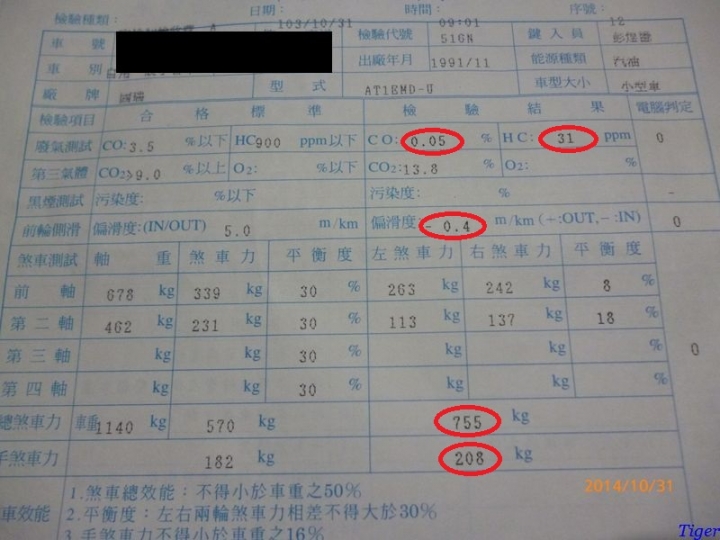 檢驗種類： 日期： 103/10/31 時間： 09:01 序號： 12
車 號 檢驗代號 51GN 鍵 入 員
車 別 出廠年月 1991/11 能源種類 汽油
廠 牌 國瑞 型 式 AT1EMD-U 車型大小 小型車
檢驗項目 合 格 標 準 檢 驗 結 果 電腦判定
廢氣測試 CO:3.5 %以下 HC900 ppm以下 CO: 0.05 % HC: 31 ppm 0
第三氣體 CO2≥9.0 %以上 O2: %以下 CO2:13.8 % O2: %
黑煙測試 污染度: %以下 污染度: % -
前輪側滑 偏滑度:(IN/OUT) 5.0 m/km 偏滑度- 0.4 m/km (+:OUT,-:IN) 0
煞車測試 軸 重 煞 車 力 平 衡 度 左 煞 車 力 右 煞 車 力 平 衡 度
前 軸 678 kg 339 kg 30 % 263 kg 242 kg 8 %
第 二 軸 462 kg 231 kg 30 % 113 kg 137 kg 18 % 0
第 三 軸 kg kg 30 % kg kg %
第 四 軸 kg kg 30 % kg kg %
總煞車力 車重1140 kg 570 kg 755 kg
手煞車力 182 kg 208 kg
車效能 1.煞車總效能：不得小於車重之50%
2.平衡度：左右兩輪煞車力相差不得大於30%
3.手煞車力不得小於車重之16%
2014/10/31
Tiger